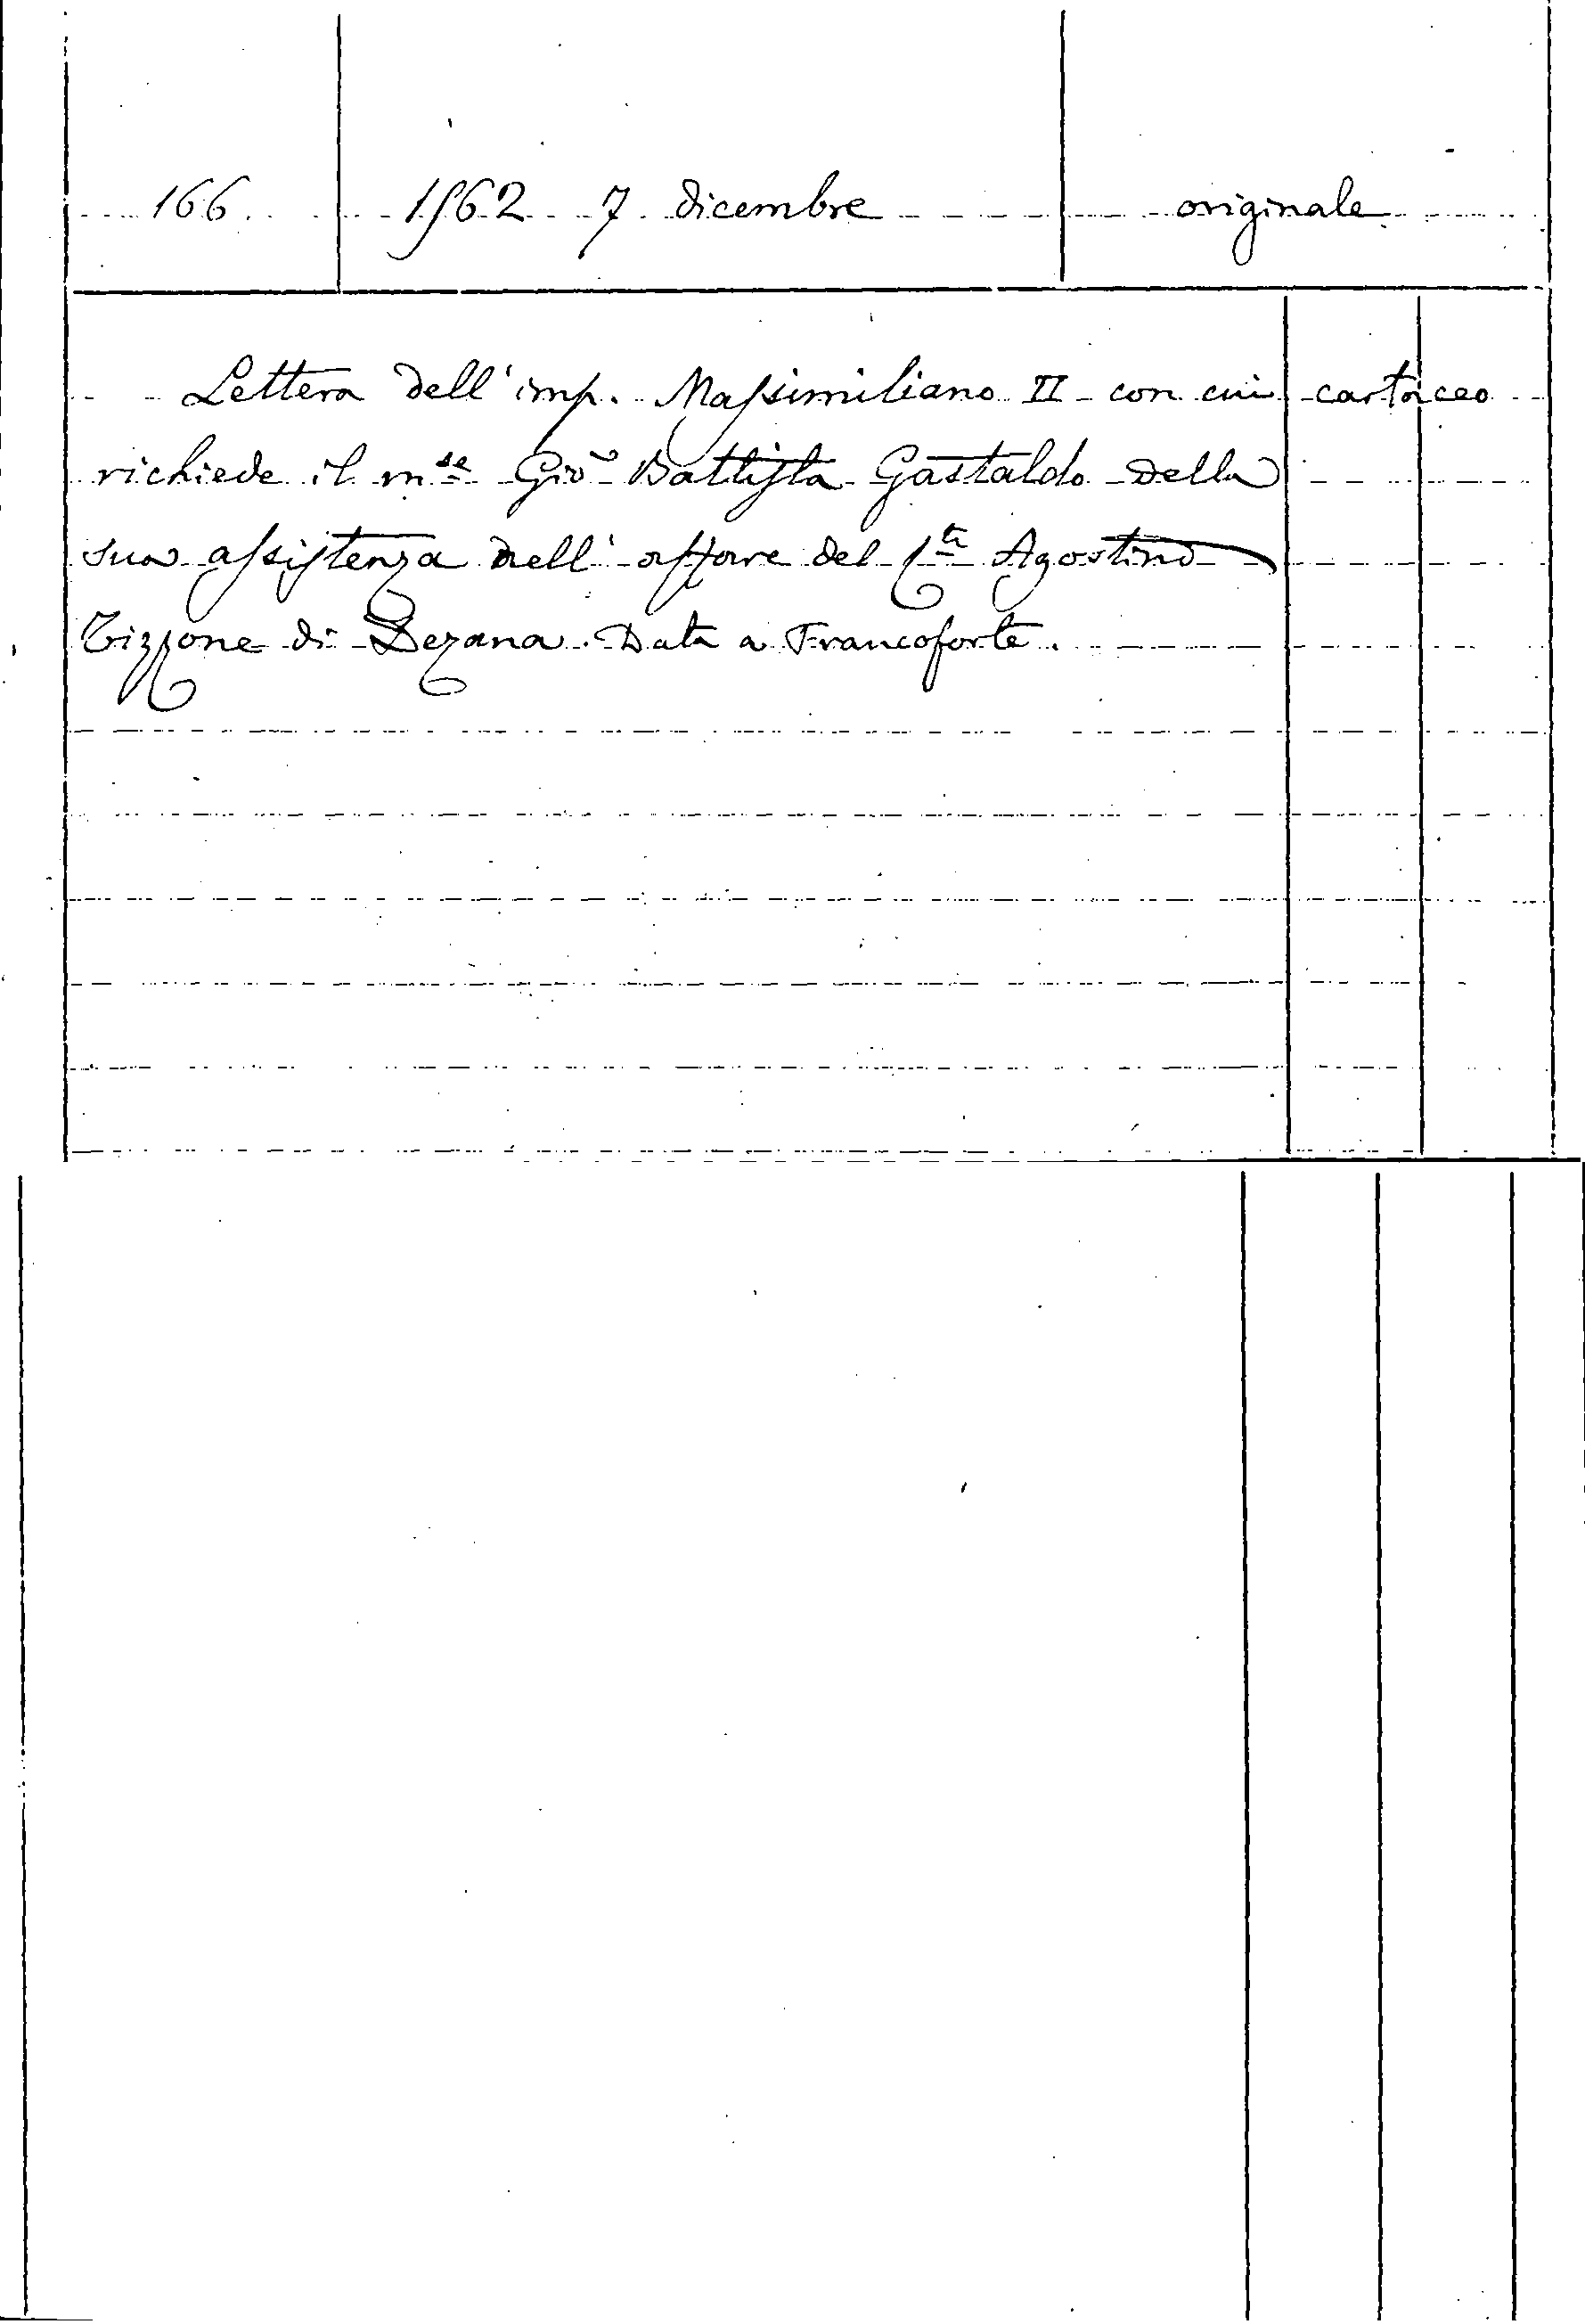 166. 1562 7 dicembre originale
Lettera dell'imp. Massimiliano II con cui cartaceo
richiede il m.se Gio Battista Gastaldo della
sua assistenza nell'affare del C.te Agostino
Tizzone di Dezana. Data a Francoforte.